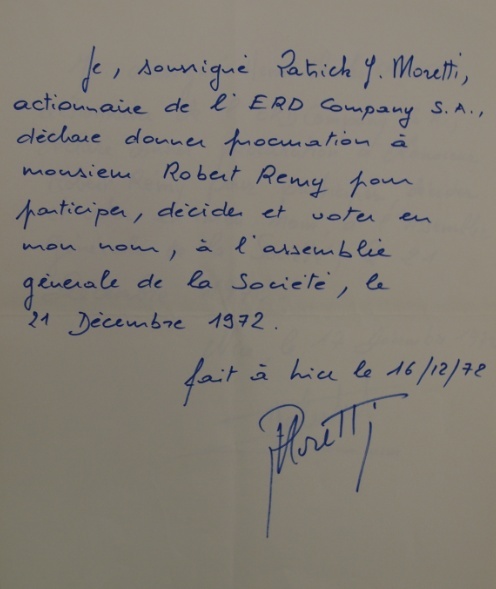 Je, soussigné Patrick J. Moretti,
actionnaire de l'ERD Company S.A.,
déclare donner procuration à
monsieur Robert Remy pour
participer, décider et voter en
mon nom, à l'assemblée
générale de la Société, le
21 Décembre 1972.
fait à Nice le 16/12/72
Moretti